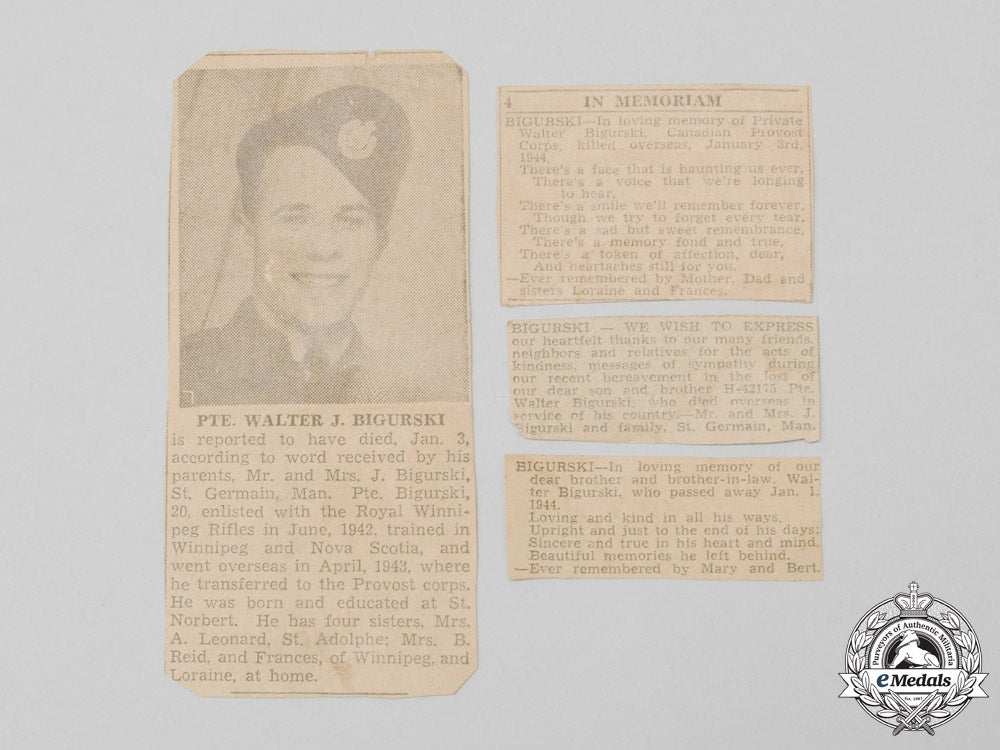 PTE. WALTER J. BIGURSKI
is reported to have died, Jan. 3,
according to word received by his
parents, Mr. and Mrs. J. Bigurski,
St. Germain, Man. Pte. Bigurski,
20, enlisted with the Royal Winni-
peg Rifles in June, 1942, trained in
Winnipeg and Nova Scotia, and
went overseas in April, 1943, where
he transferred to the Provost corps.
He was born and educated at St.
Norbert. He has four sisters, Mrs.
A. Leonard, St. Adolphe; Mrs. B.
Reid, and Frances, of Winnipeg, and
Loraine, at home.
4 IN MEMORIAM
BIGURSKI—In loving memory of Private
Walter Bigurski, Canadian Provost
Corps, killed overseas, January 3rd,
1944.
There's a face that is haunting us ever,
There's a voice that we're longing
to hear,
There's a smile we'll remember forever,
Though we try to forget every tear.
There's a sad but sweet remembrance,
There's a memory fond and true,
There's a token of affection, dear,
And heartaches still for you.
—Ever remembered by Mother, Dad and
sisters Loraine and Frances.
BIGURSKI — WE WISH TO EXPRESS
our heartfelt thanks to our many friends,
neighbors and relatives for the acts of
kindness, messages of sympathy during
our recent bereavement in the loss of
our dear son and brother H-42175 Pte.
Walter Bigurski, who died overseas in
service of his country.—Mr. and Mrs. J.
Bigurski and family, St. Germain, Man.
BIGURSKI—In loving memory of our
dear brother and brother-in-law, Wal-
ter Bigurski, who passed away Jan. 1,
1944.
Loving and kind in all his ways,
Upright and just to the end of his days;
Sincere and true in his heart and mind,
Beautiful memories he left behind.
—Ever remembered by Mary and Bert.
Purveyors of Authentic Militaria
eMedals
Est. 1987